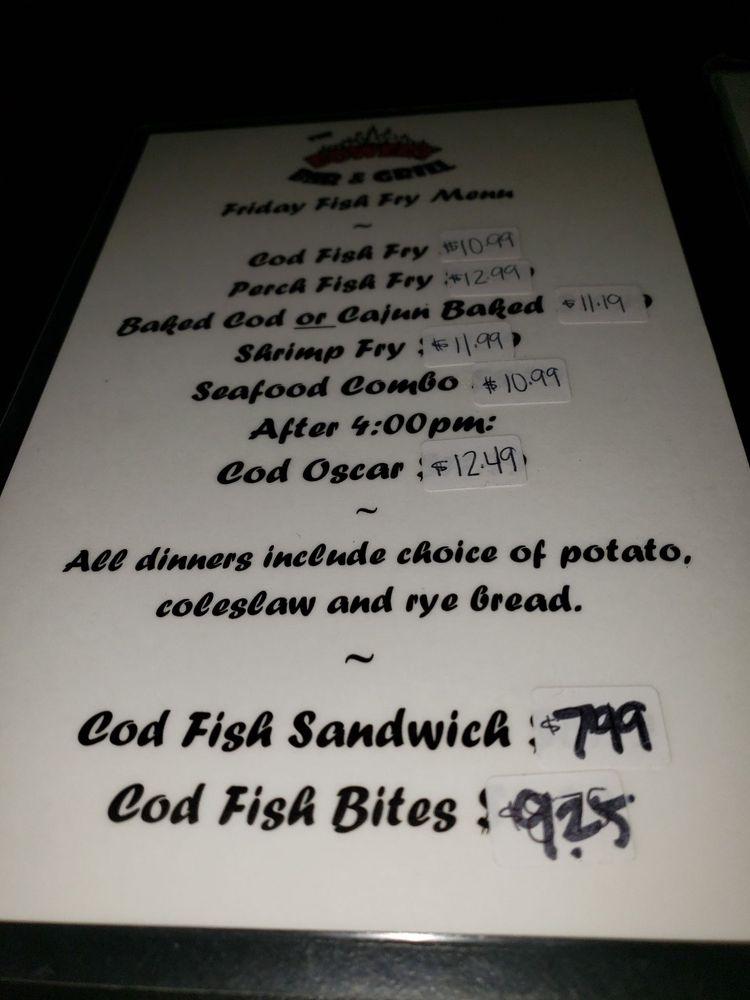 THE
BAR & GRILL
Friday Fish Fry Menu
~
Cod Fish Fry $10.99
Perch Fish Fry $12.99
Baked Cod or Cajun Baked $11.19
Shrimp Fry $11.99
Seafood Combo $10.99
After 4:00pm:
Cod Oscar $12.49
~
All dinners include choice of potato,
coleslaw and rye bread.
~
Cod Fish Sandwich $799
Cod Fish Bites $925